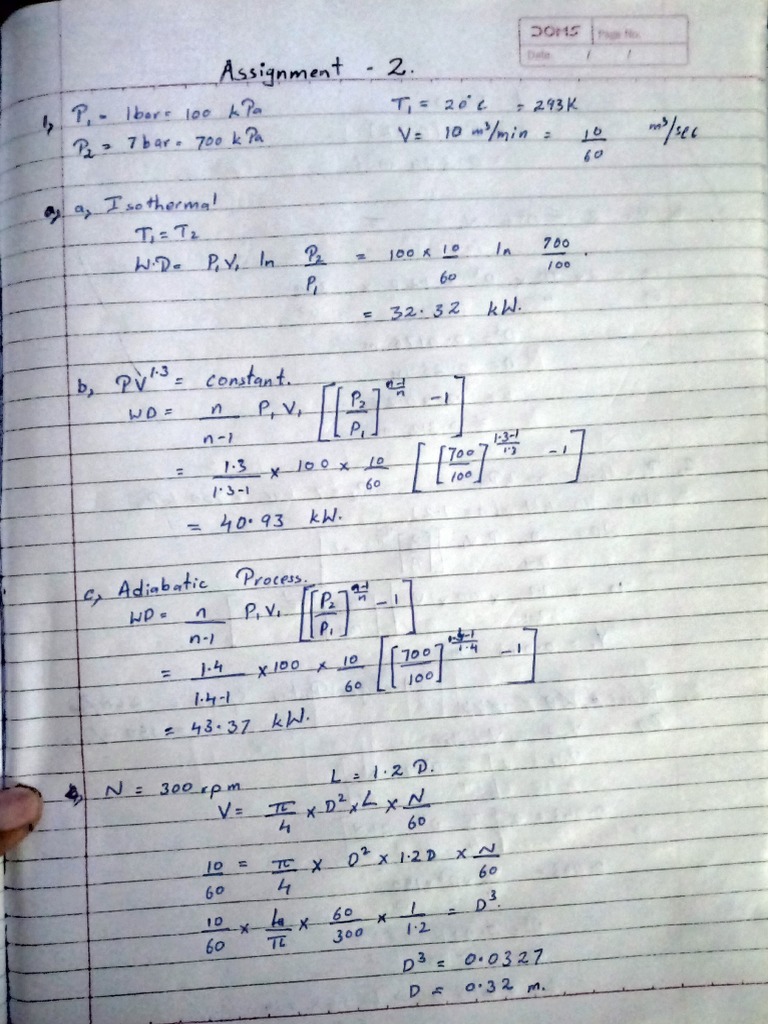 DOMS Page No.
Date / /
Assignment - 2.
1, P₁ = 1bar = 100 kPa T₁ = 20°C = 293K
P₂ = 7bar = 700 kPa V = 10 m³/min = 10/60 m³/sec
a, Isothermal
T₁ = T₂
W.D = P₁V₁ ln P₂/P₁ = 100 x 10/60 ln 700/100.
= 32.32 kW.
b, PV^1.3 = constant.
WD = n/n-1 P₁V₁ [[P₂/P₁]^(n-1/n) - 1]
= 1.3/1.3-1 x 100 x 10/60 [[700/100]^(1.3-1/1.3) - 1]
= 40.93 kW.
c, Adiabatic Process.
WD = n/n-1 P₁V₁ [[P₂/P₁]^(n-1/n) - 1]
= 1.4/1.4-1 x 100 x 10/60 [[700/100]^(1.4-1/1.4) - 1]
= 43.37 kW.
N = 300 rpm L = 1.2 D.
V = π/4 x D² x L x N/60
10/60 = π/4 x D² x 1.2D x N/60
10/60 x 4/π x 60/300 x 1/1.2 = D³.
D³ = 0.0327
D = 0.32 m.